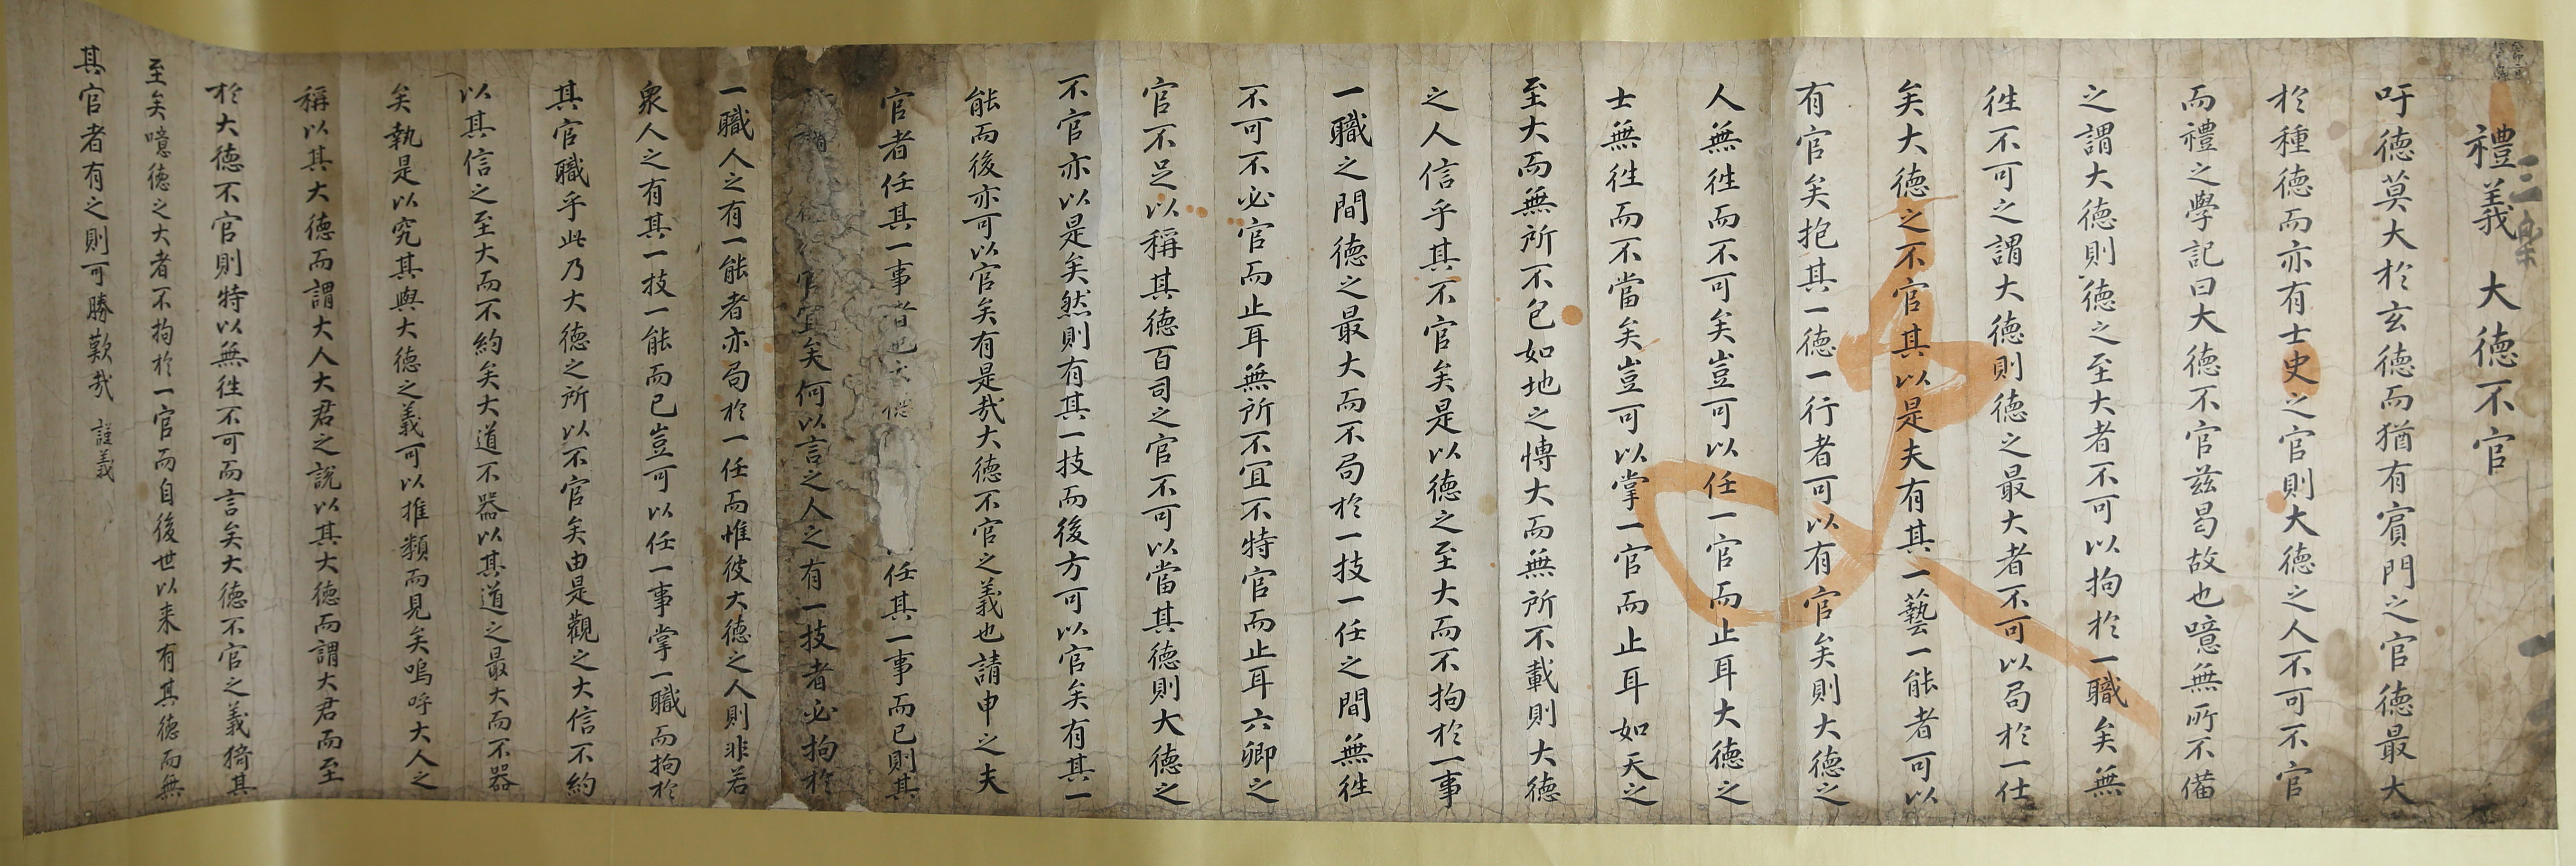 禮義 大德不官
吁德莫大於玄德而猶有賓門之官德最大
於種德而亦有士史之官則大德之人不可不官
而禮之學記曰大德不官茲曷故也噫無所不備
之謂大德則德之至大者不可以拘於一職矣無
徃不可之謂大德則德之最大者不可以局於一仕
矣大德之不官其以是夫有其一藝一能者可以
有官矣抱其一德一行者可以有官矣則大德之
人無徃而不可矣豈可以任一官而止耳大德之
士無徃而不當矣豈可以掌一官而止耳如天之
至大而無所不包如地之博大而無所不載則大德
之人信乎其不官矣是以德之至大而不拘於一事
一職之間德之最大而不局於一技一任之間無徃
不可不必官而止耳無所不宜不特官而止耳六卿之
官不足以稱其德百司之官不可以當其德則大德之
不官亦以是矣然則有其一技而後方可以官矣有其一
能而後亦可以官矣有是哉大德不官之義也請申之夫
官者任其一事者也大德任其一事而已則其
官宜矣何以言之人之有一技者必拘於
一職人之有一能者亦局於一任而惟彼大德之人則非若
衆人之有其一技一能而已豈可以任一事掌一職而拘於
其官職乎此乃大德之所以不官矣由是觀之大信不約
以其信之至大而不約矣大道不器以其道之最大而不器
矣執是以究其與大德之義可以推類而見矣嗚呼大人之
稱以其大德而謂大人大君之說以其大德而謂大君而至
於大德不官則特以無徃不可而言矣大德不官之義猗其
至矣噫德之大者不拘於一官而自後世以来有其德而無
其官者有之則可勝歎哉 謹義